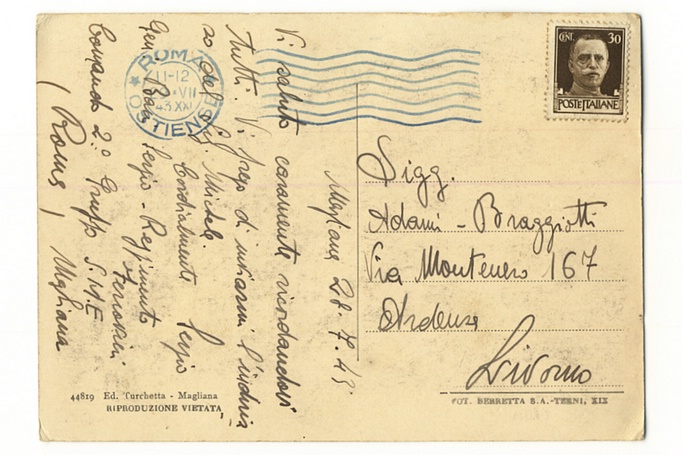 Magliana 28-7-43
Vi saluto caramente ricordandovi
tutti. Vi prego di inviarmi l'indiriz
zo del S. Michele.
Cordialmente Sergio
Sergio - Reggimento
Ferrovieri
Comando 2° Gruppo S.M.E
(Roma) Magliana
ROMA
11-12
VII
43.XXI
OSTIENSE
CENT. 30
POSTE ITALIANE
Sigg.
Adami - Braggiotti
Via Montenero 167
Ardenza
Livorno
44819 Ed. Turchetta - Magliana
RIPRODUZIONE VIETATA
FOT. BERRETTA S.A.-TERNI, XIX